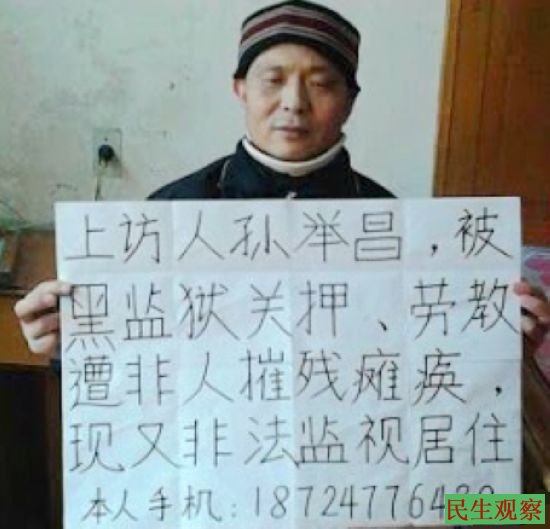 上访人孙举昌，被
黑监狱关押、劳教
遭非人摧残瘫痪，
现又非法监视居住
本人手机：
民生观察